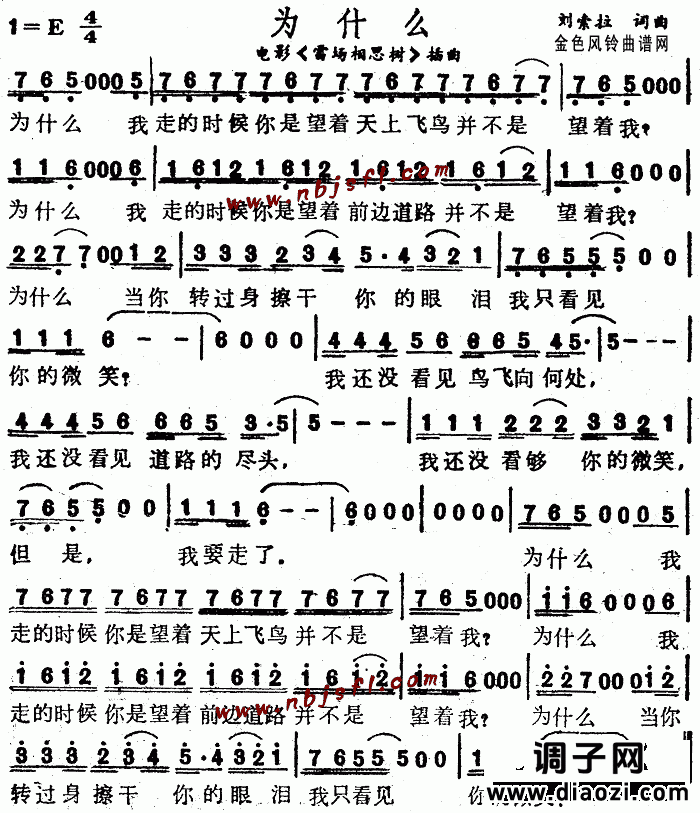 为什么
1=E 4/4
刘索拉 词曲
电影《雷场相思树》插曲
金色风铃曲谱网
765 0005 7677 7677 7677 7677 765 000
为什么 我 走的时候你是望着天上飞鸟并不是 望着我?
116 0006 1612 1612 1612 1612 116 000
www.nbjsfl.com
为什么 我 走的时候你是望着前边道路并不是 望着我?
2277 0012 333 234 5·4 321 7655500
为什么 当你 转过身擦干 你的眼泪我只看见
111 6-- 6000 444 56 665 45· 5--
你的微笑? 我还没看见鸟飞向何处,
444 56 665 3·5 5-- 111 222 3321
我还没看见道路的尽头, 我还没看够 你的微笑,
765500 1116- 60000 0000 765 0005
但是, 我要走了. 为什么 我
7677 7677 7677 7677 765000 116 0006
走的时候你是望着天上飞鸟并不是 望着我? 为什么 我
1612 1612 1612 1612 116000 227 0012
www.nbjsfl.com
走的时候你是望着前边道路并不是 望着我? 为什么 当你
333 234 5·4 321 7655500 1
转过身擦干 你的眼泪我只看见 你
调子网
www.diaozi.com